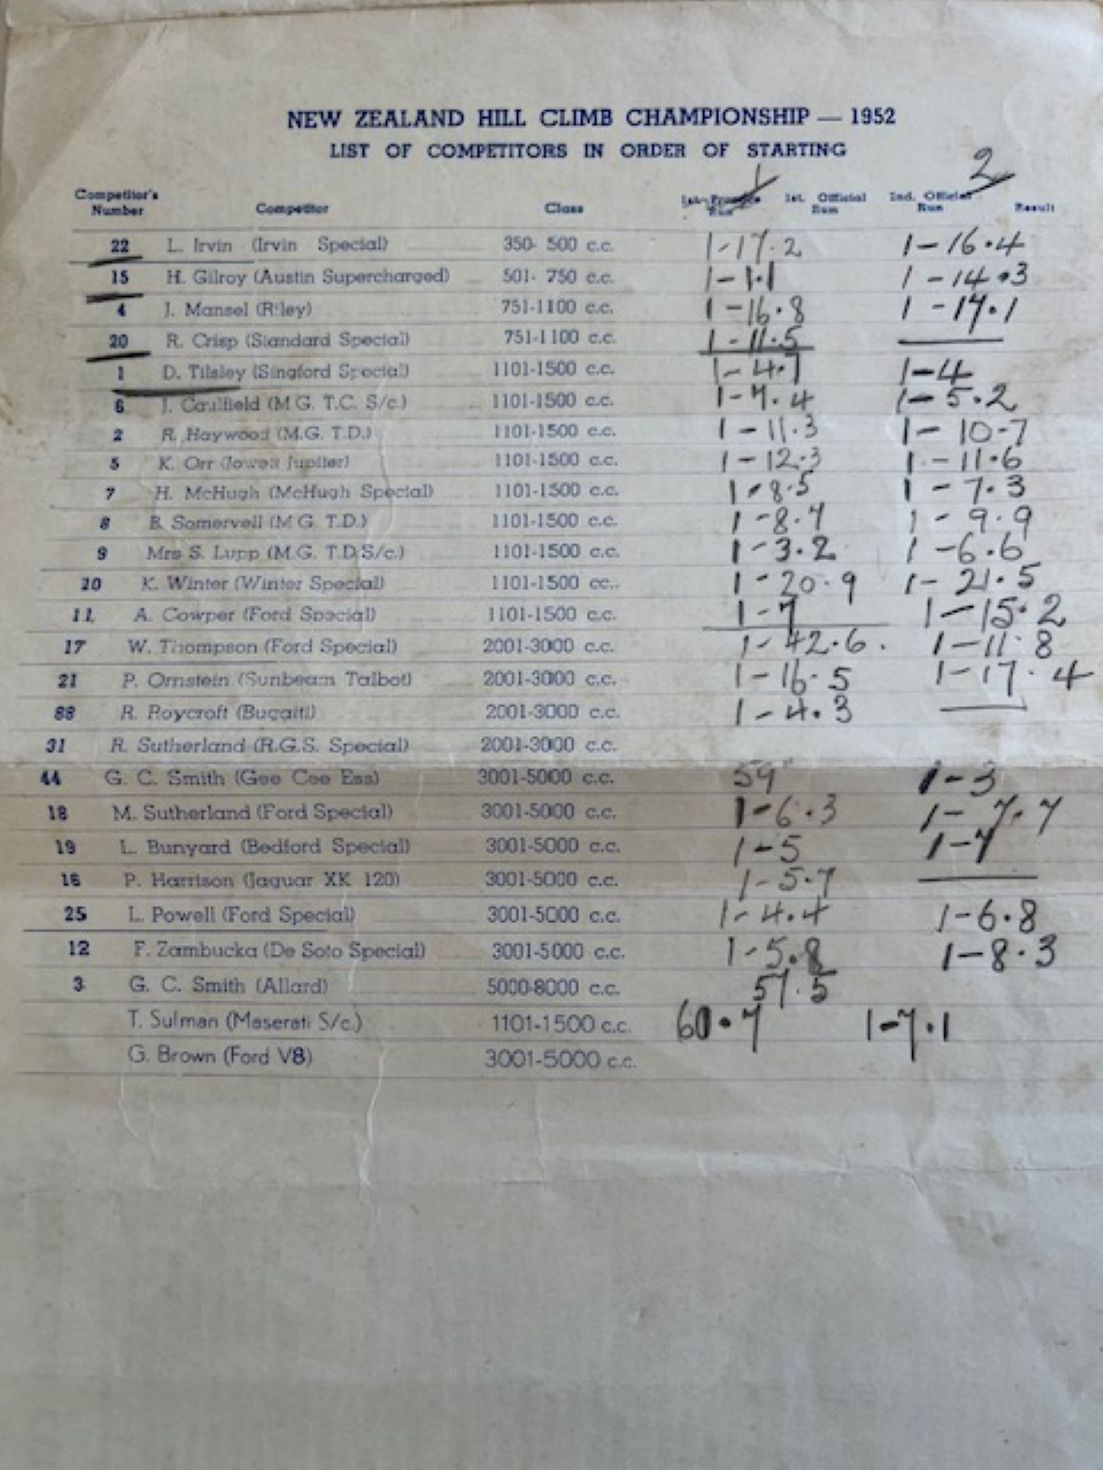 NEW ZEALAND HILL CLIMB CHAMPIONSHIP — 1952
LIST OF COMPETITORS IN ORDER OF STARTING
1 2
Competitor's Number Competitor Class 1st. Practice Run 1st. Official Run 2nd. Official Run Result
22 L. Irvin (Irvin Special) 350- 500 c.c. 1-17.2 1-16.4
15 H. Gilroy (Austin Supercharged) 501- 750 c.c. 1-1.1 1-14.3
4 J. Mansel (Riley) 751-1100 c.c. 1-16.8 1-17.1
20 R. Crisp (Standard Special) 751-1100 c.c. 1-11.5 —
1 D. Tilsley (Singford Special) 1101-1500 c.c. 1-4.7 1-4
6 J. Caulfield (M.G. T.C. S/c.) 1101-1500 c.c. 1-7.4 1-5.2
2 R. Haywood (M.G. T.D.) 1101-1500 c.c. 1-11.3 1-10-7
5 K. Orr (Jowett Jupiter) 1101-1500 c.c. 1-12.3 1-11.6
7 H. McHugh (McHugh Special) 1101-1500 c.c. 1-8.5 1-7.3
8 B. Somervell (M.G. T.D.) 1101-1500 c.c. 1-8.7 1-9.9
9 Mrs S. Lupp (M.G. T.D. S/c.) 1101-1500 c.c. 1-3.2 1-6.6
10 K. Winter (Winter Special) 1101-1500 cc.. 1-20.9 1-21.5
11, A. Cowper (Ford Special) 1101-1500 c.c. 1-7 1-15.2
17 W. Thompson (Ford Special) 2001-3000 c.c. 1-42.6. 1-11.8
21 P. Ornstein (Sunbeam Talbot) 2001-3000 c.c. 1-16.5 1-17.4
88 R. Roycroft (Bugatti) 2001-3000 c.c. 1-4.3 —
31 R. Sutherland (R.G.S. Special) 2001-3000 c.c.
44 G. C. Smith (Gee Cee Ess) 3001-5000 c.c. 59" 1-3
18 M. Sutherland (Ford Special) 3001-5000 c.c. 1-6.3 1-7.7
19 L. Bunyard (Bedford Special) 3001-5000 c.c. 1-5 1-7
16 P. Harrison (Jaguar XK 120) 3001-5000 c.c. 1-5.7 —
25 L. Powell (Ford Special) 3001-5000 c.c. 1-4.4 1-6.8
12 F. Zambucka (De Soto Special) 3001-5000 c.c. 1-5.8 1-8.3
3 G. C. Smith (Allard) 5000-8000 c.c. 57.5
T. Sulman (Maserati S/c.) 1101-1500 c.c. 60.7 1-7.1
G. Brown (Ford V8) 3001-5000 c.c.